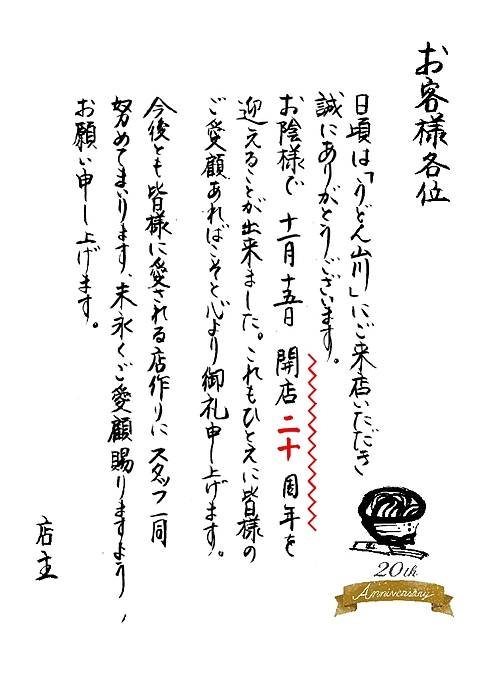 お客様各位
日頃は「うどん山川」にご来店いただき
誠にありがとうございます。
お陰様で 十一月十五日 開店二十周年を
迎えることが出来ました。これもひとえに皆様の
ご愛顧あればこそと心より御礼申し上げます。
今後とも皆様に愛される店作りにスタッフ一同
努めてまいります、末永くご愛顧賜りますよう、
お願い申し上げます。
店主
20th
Anniversary